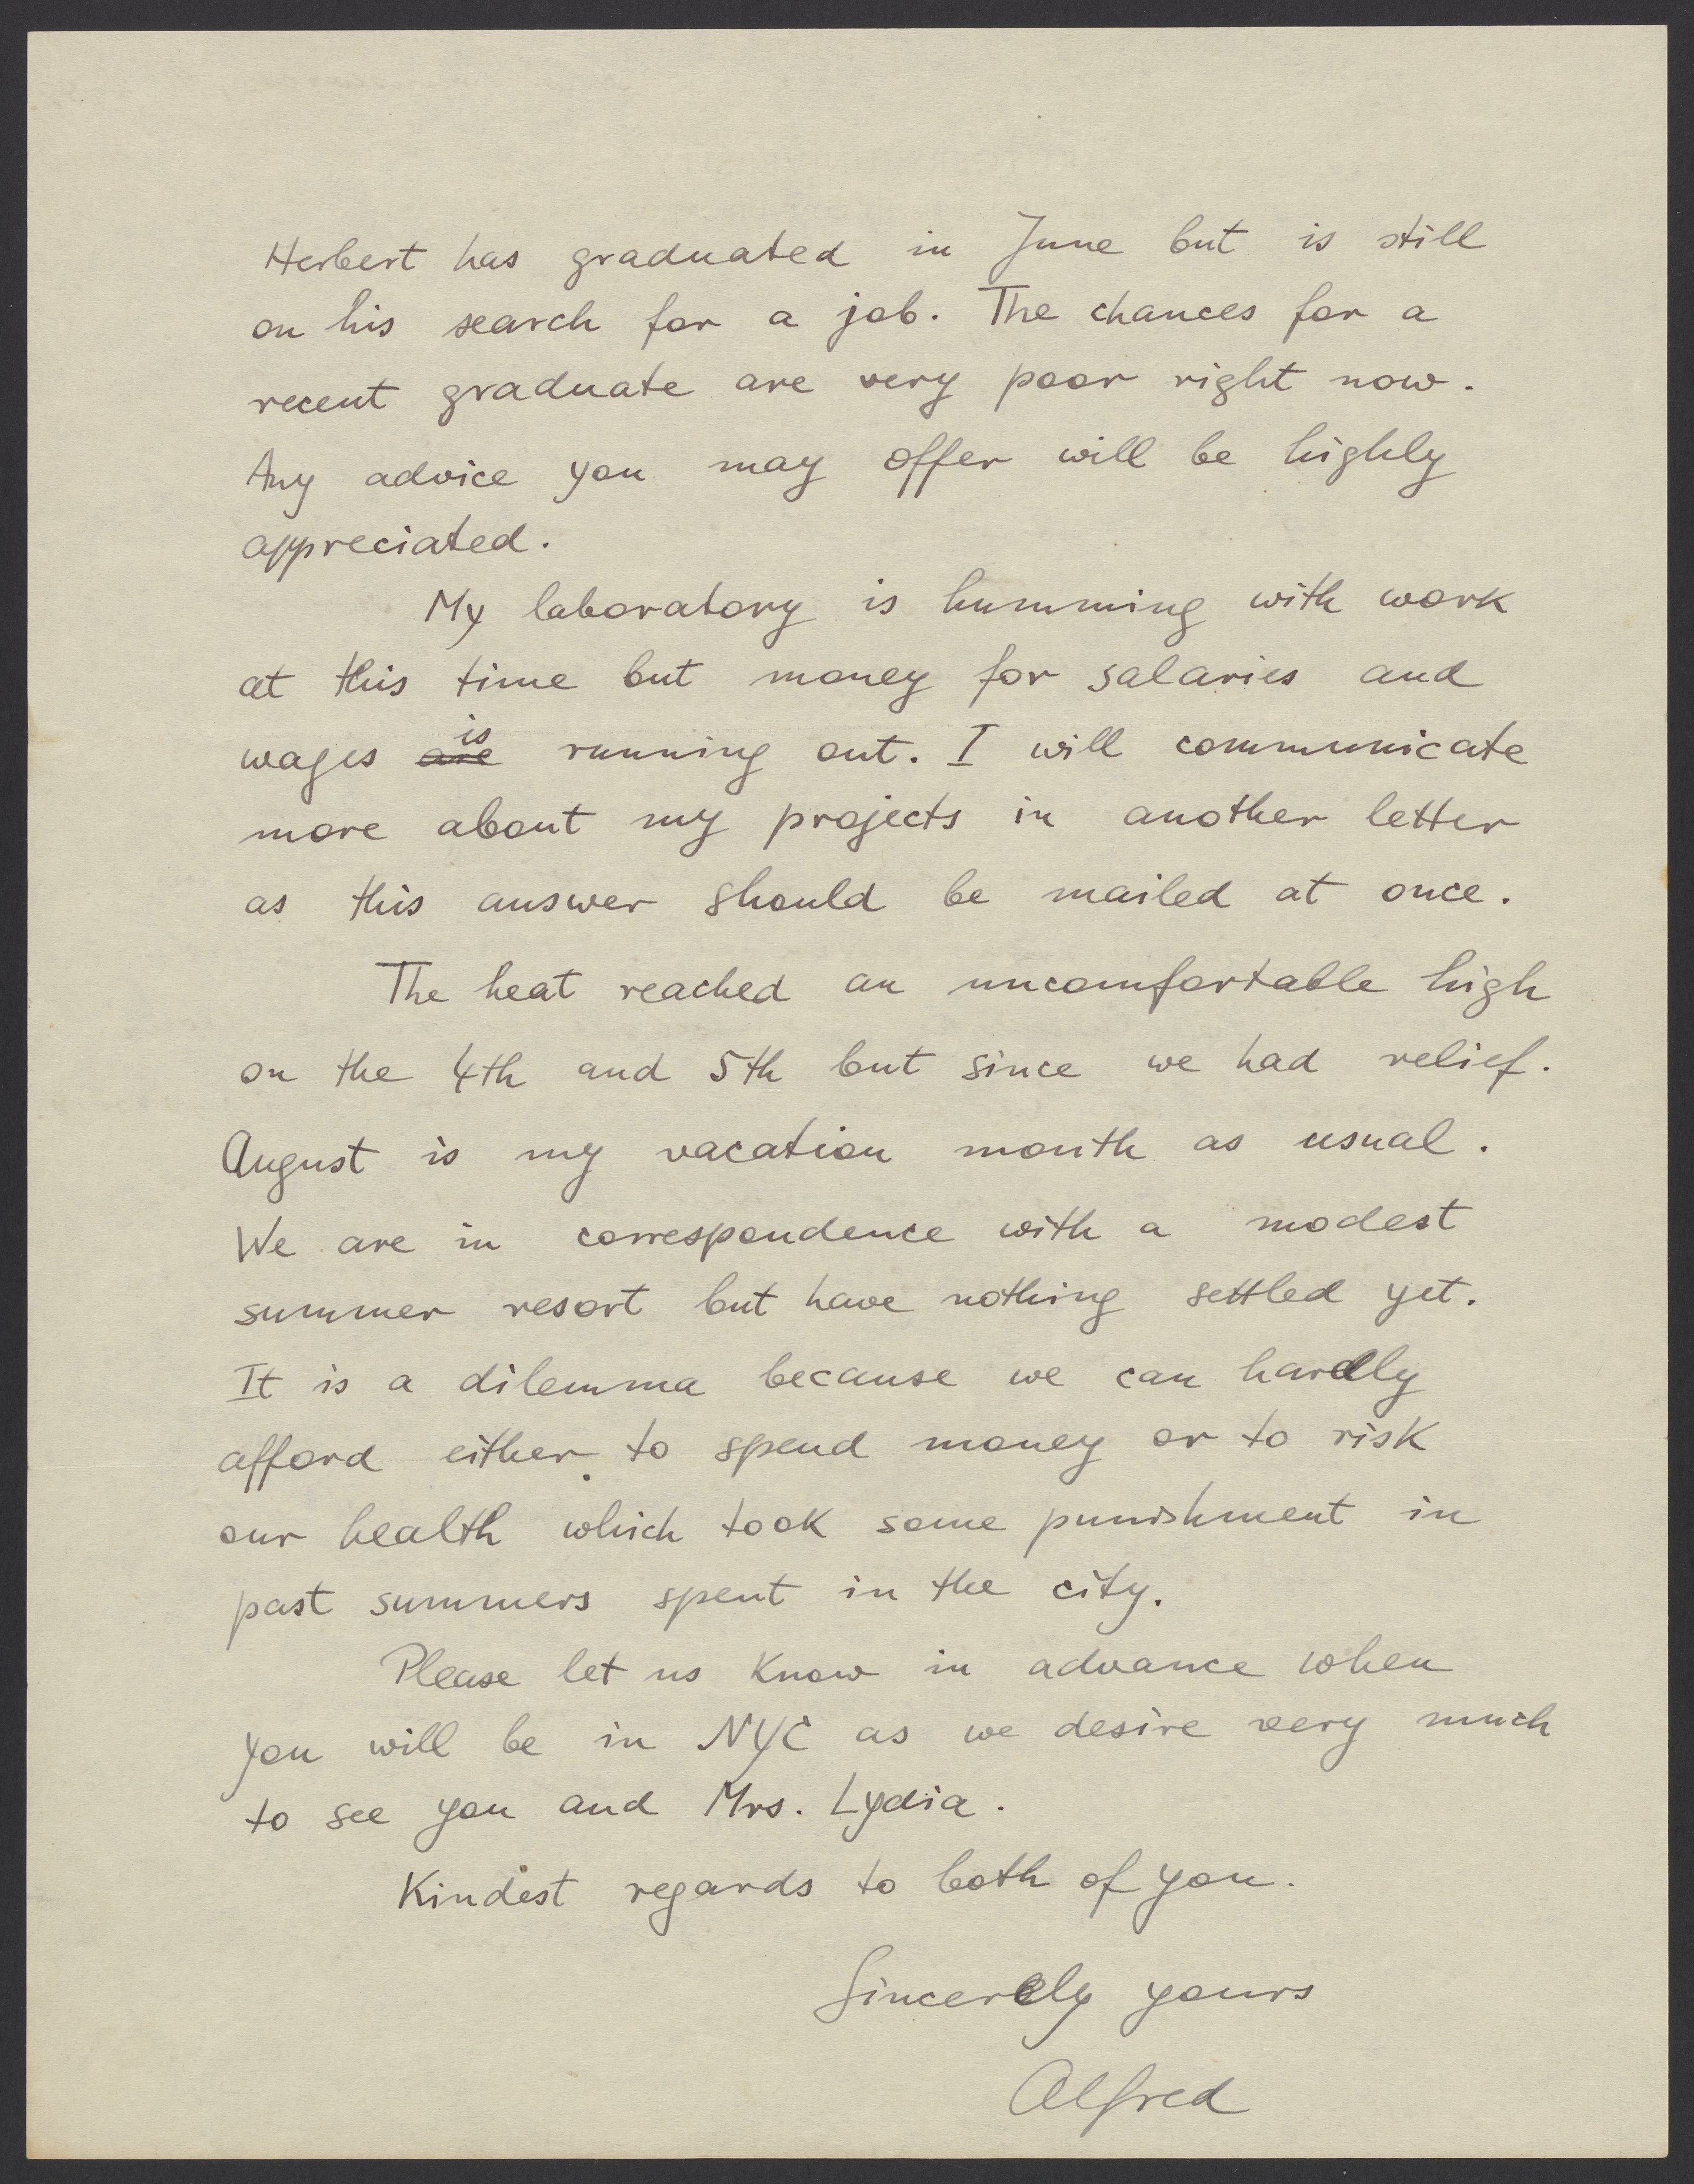 Herbert has graduated in June but is still
on his search for a job. The chances for a
recent graduate are very poor right now.
Any advice you may offer will be highly
appreciated.
My laboratory is humming with work
at this time but money for salaries and
wages are is running out. I will communicate
more about my projects in another letter
as this answer should be mailed at once.
The heat reached an uncomfortable high
on the 4th and 5th but since we had relief.
August is my vacation month as usual.
We are in correspondence with a modest
summer resort but have nothing settled yet.
It is a dilemma because we can hardly
afford either to spend money or to risk
our health which took some punishment in
past summers spent in the city.
Please let us know in advance when
you will be in NYC as we desire very much
to see you and Mrs. Lydia.
Kindest regards to both of you.
Sincerely yours
Alfred